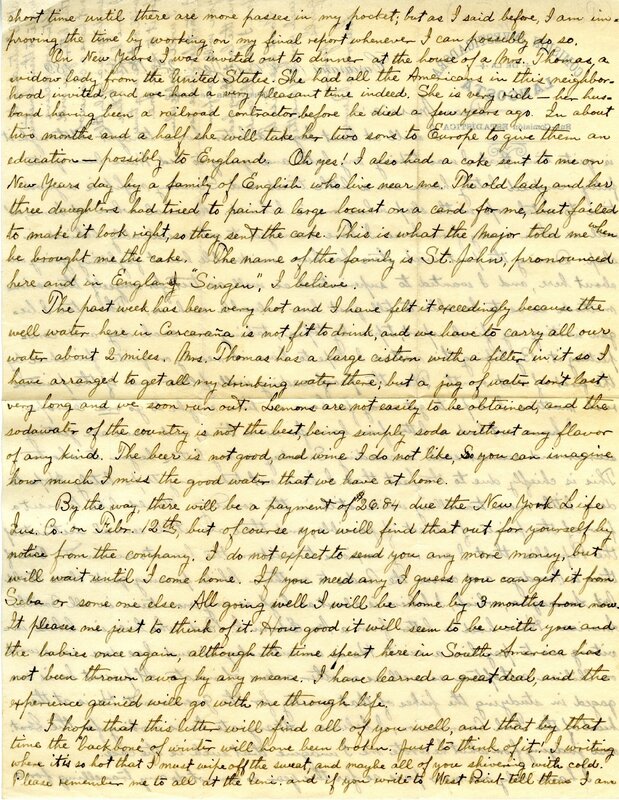 short time until there are more passes in my pocket; but as I said before, I am im-
proving the time by working on my final report whenever I can possibly do so.
On New Years I was invited out to dinner at the house of a Mrs. Thomas, a
widow lady, from the United States. She had all the Americans in this neighbor-
hood invited, and we had a very pleasant time indeed. She is very rich – her hus-
band having been a railroad contractor before he died a few years ago. In about
two months and a half she will take her two sons to Europe to give them an
education – possibly to England. Oh yes! I also had a cake sent to me on
New Years day by a family of English who live near me. The old lady and her
three daughters had tried to paint a large locust on a card for me, but failed
to make it look right, so they sent the cake. This is what the Major told me when
he brought me the cake. The name of the family is St. John, pronounced
here and in England "Singen", I believe.
The past week has been very hot and I have felt it exceedingly because the
well water here in Carcaraña is not fit to drink, and we have to carry all our
water about 2 miles. Mrs. Thomas has a large cistern with a filter in it so I
have arranged to get all my drinking water there; but a jug of water don't last
very long and we soon run out. Lemons are not easily to be obtained, and the
sodawater of the country is not the best, being simply soda without any flavor
of any kind. The beer is not good and wine I do not like, So you can imagine
how much I miss the good water that we have at home.
By the way, there will be a payment of $26.84 due the New York Life
Ins. Co. on Febr. 12th, but of course you will find that out for yourself by
notice from the company. I do not expect to send you any more money, but
will wait until I come home. If you need any I guess you can get it from
Seba or some one else. All going well I will be home by 3 months from now.
It pleases me just to think of it. How good it will seem to be with you and
the babies once again, although the time spent here in South America has
not been thrown away by any means. I have learned a great deal, and the
experience gained will go with me through life.
I hope that this letter will find all of you well, and that by that
time the backbone of winter will have been broken. Just to think of it! I writing
when it is so hot that I must wipe off the sweat, and maybe all of you shivering with cold.
Please remember me to all at the Uni. and if you write to West Point tell them I am